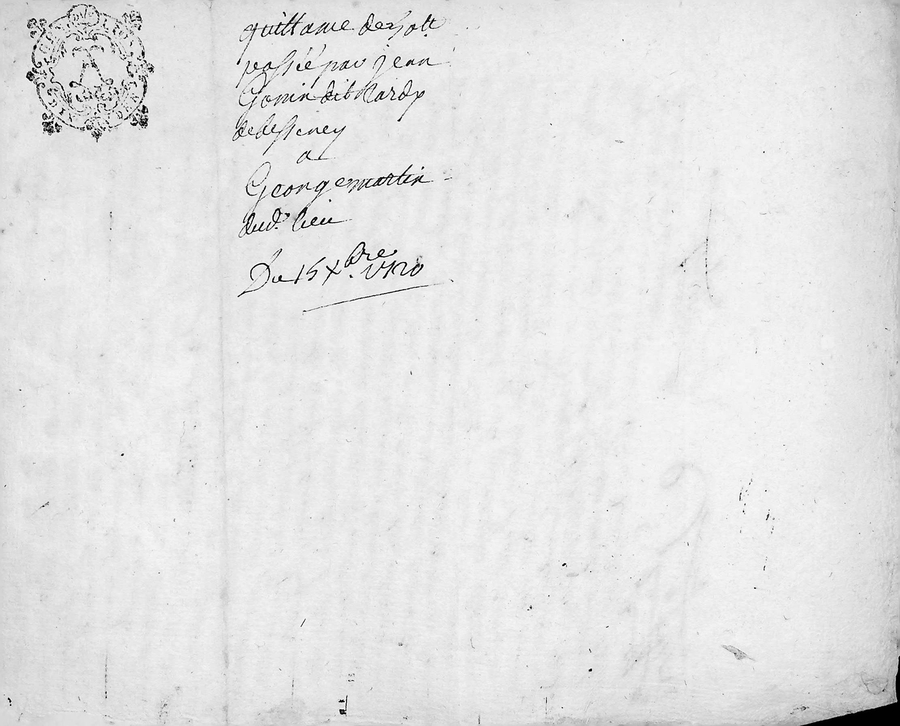 quittance de 50 ll
passée par jean
Gonin dit
de bessenay
a
George martin
dud. lieu
Du 15 Xbre 1720